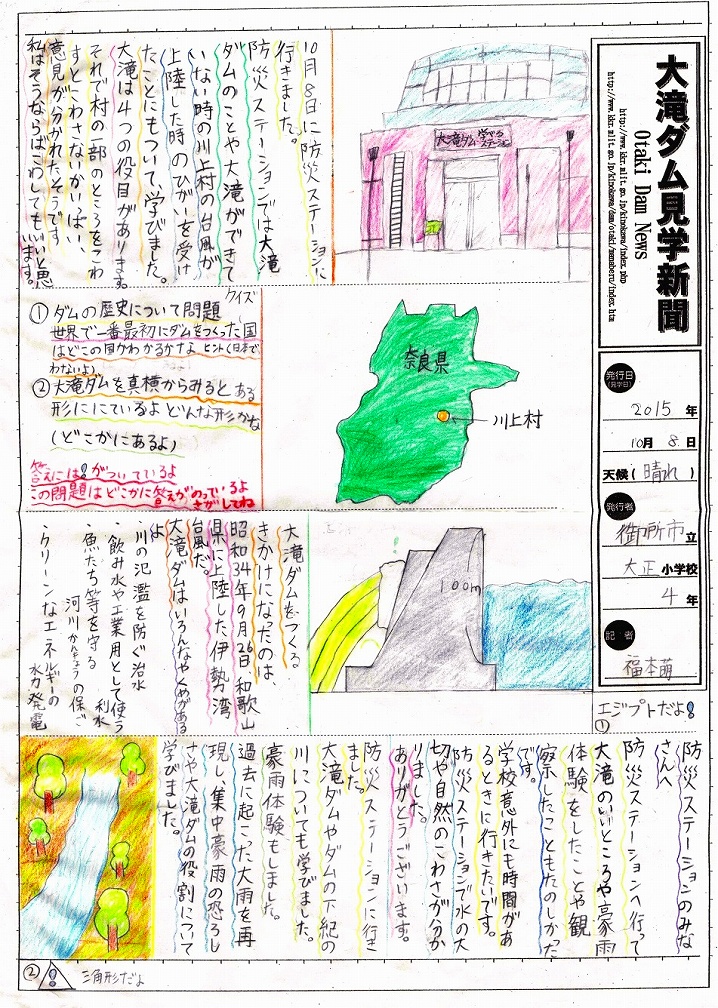 大滝ダム見学新聞
Otaki Dam News
http://www.kkr.mlit.go.jp/kinokawa/index.php
http://www.kkr.mlit.go.jp/kinokawa/dam/otaki/manaberu/index.htm
発行日
(見学日)
2015年
10月8日
天候(晴れ)
発行者
御所市立
大正小学校
4年
記者
福本萌
エジプトだよ!
①
大滝ダム 学べる
ステーション
10月8日に防災ステーションに
行きました。
防災ステーションでは大滝
ダムのことや大滝ができて
いない時の川上村の台風が
上陸した時のひがいを受け
たことにもついて学びました。
大滝は4つの役目があります。
それで村の一部のところをこわ
すとこわさないかいはい、
意見が分かれたそうです。
私はそうならばこわしてもいいと思
います。
奈良県
川上村
クイズ
①ダムの歴史について問題
世界で一番最初にダムをつくった国
はどこの国かわかるかなよ ヒント(日本で
わないよ)
②大滝ダムを真横からみるとある
形ににているよ どんな形かな
(どこかにあるよ)
答えには!がついているよ
この問題はどこかに答えがのっているよ
さがしてね
100m
大滝ダムをつくる
きかけになったのは、
昭和34年9月26日和歌山
県に上陸した伊勢湾
台風だ。
大滝ダムはいろんなやくめがある
よ
・川の氾濫を防ぐ治水
・飲み水や工業用として使う
利水
・魚たち等を守る
河川かんきょうの保ご
・クリーンなエネルギーの
水力発電
防災ステーションのみな
さんへ
防災ステーションへ行って
大滝のいいところや豪雨
体験をしたことや観
察したこともたのしかった
です。
学校意外にも時間があ
るときに行きたいです。
防災ステーションで水の大
切や自然のこわさが分か
りました。
ありがとうございます。
防災ステーションに行き
ました。
大滝ダムやダムの下紀の
川についても学びました。
豪雨体験もしました。
過去に起こった大雨を再
現し、集中豪雨の恐ろし
さや大滝ダムの役割について
学びました。
②
!
三角形だよ